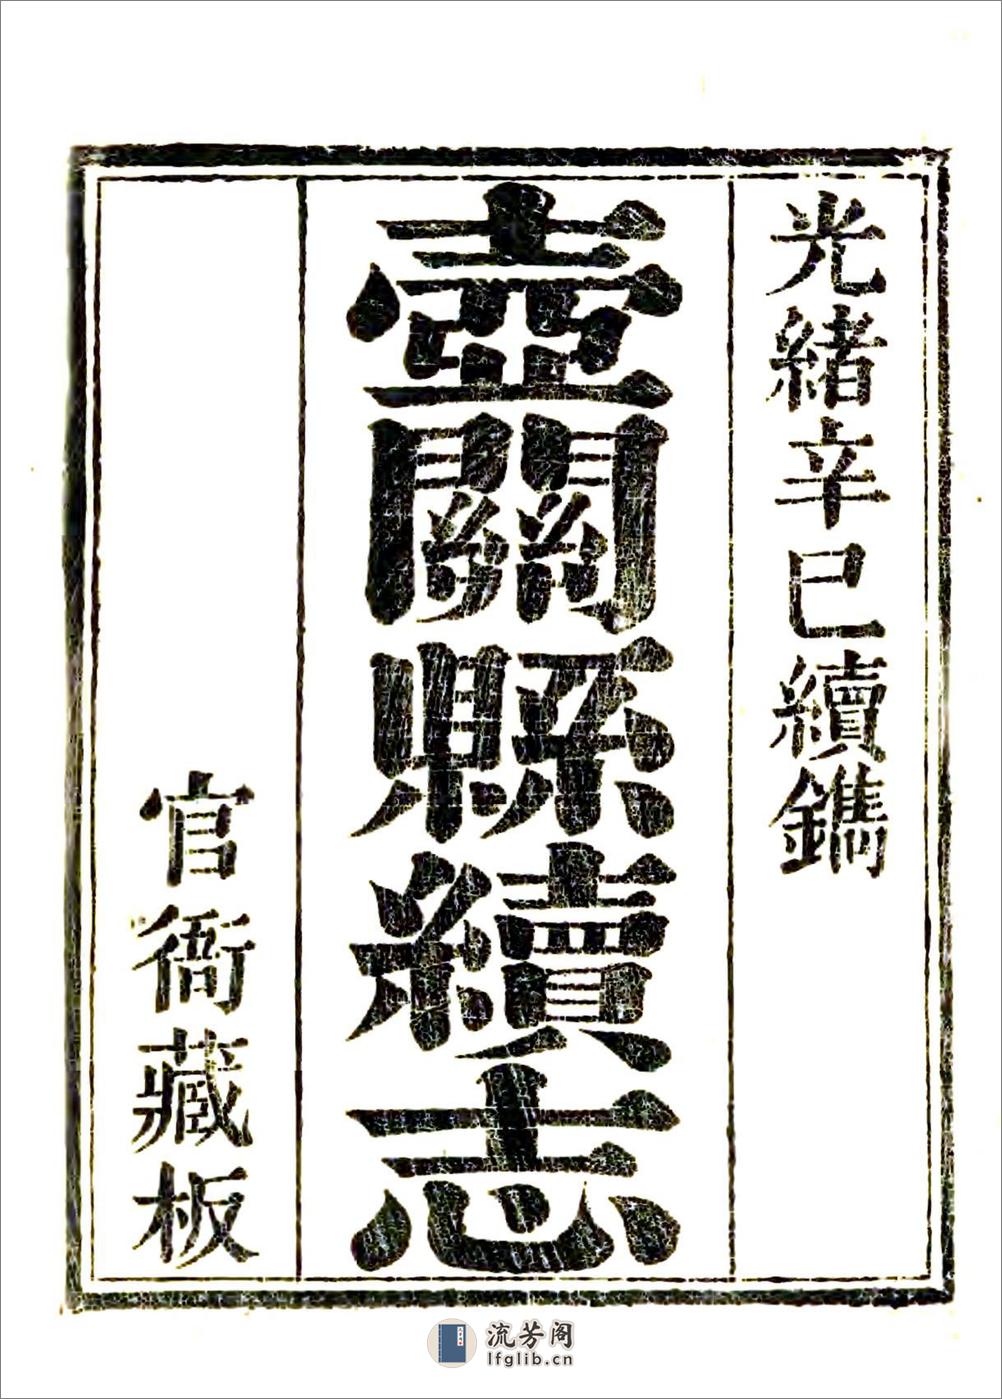 光緒辛巳續鐫
壺關縣續志
官衙藏板
流芳阁
lfglib.cn